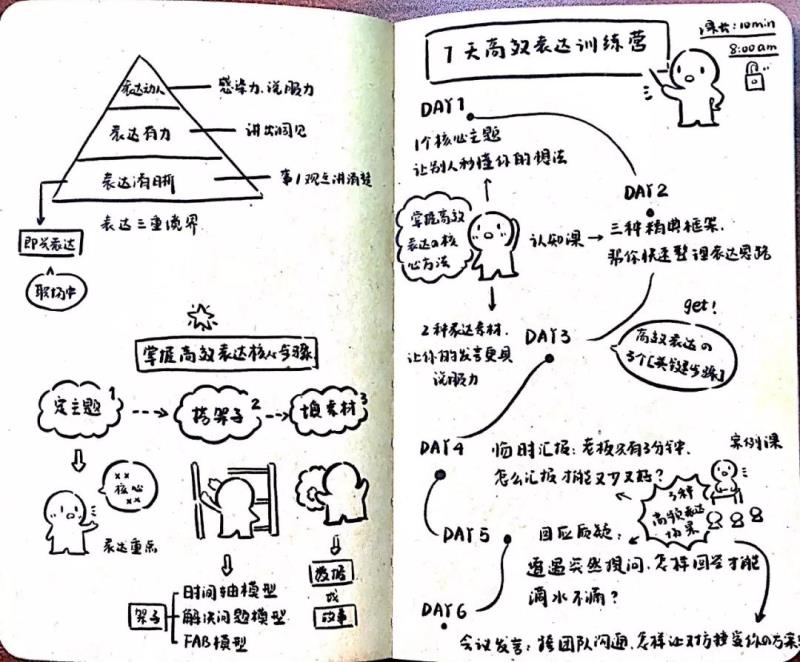 表达动人
感染力、说服力
表达有力
讲出洞见
表达清晰
第1观点讲清楚
表达三重境界
即兴表达
职场中
掌握高效表达核心步骤
定主题 1
搭架子 2
填素材 3
××
核心
××
表达重点
架子
时间轴模型
解决问题模型
FAB模型
数据
或
故事
7天高效表达训练营
课长:10min
8:00am
DAY1
1个核心主题
让别人秒懂你的想法
DAY2
三种精典框架,
帮你快速整理表达思路
掌握高效
表达の核
心方法
认知课
2种表达素材,
让你的发言更具
说服力
DAY3
get!
高效表达の
3个[关键步骤]
DAY4
临时汇报:老板只有3分钟,
怎么汇报才能又少又好?
案例课
3种
高频表达
场景
DAY5
回应质疑:
遭遇突然提问,怎样回答才能
滴水不漏?
DAY6
会议发言:跨团队沟通,怎样让对方接受你の方案!